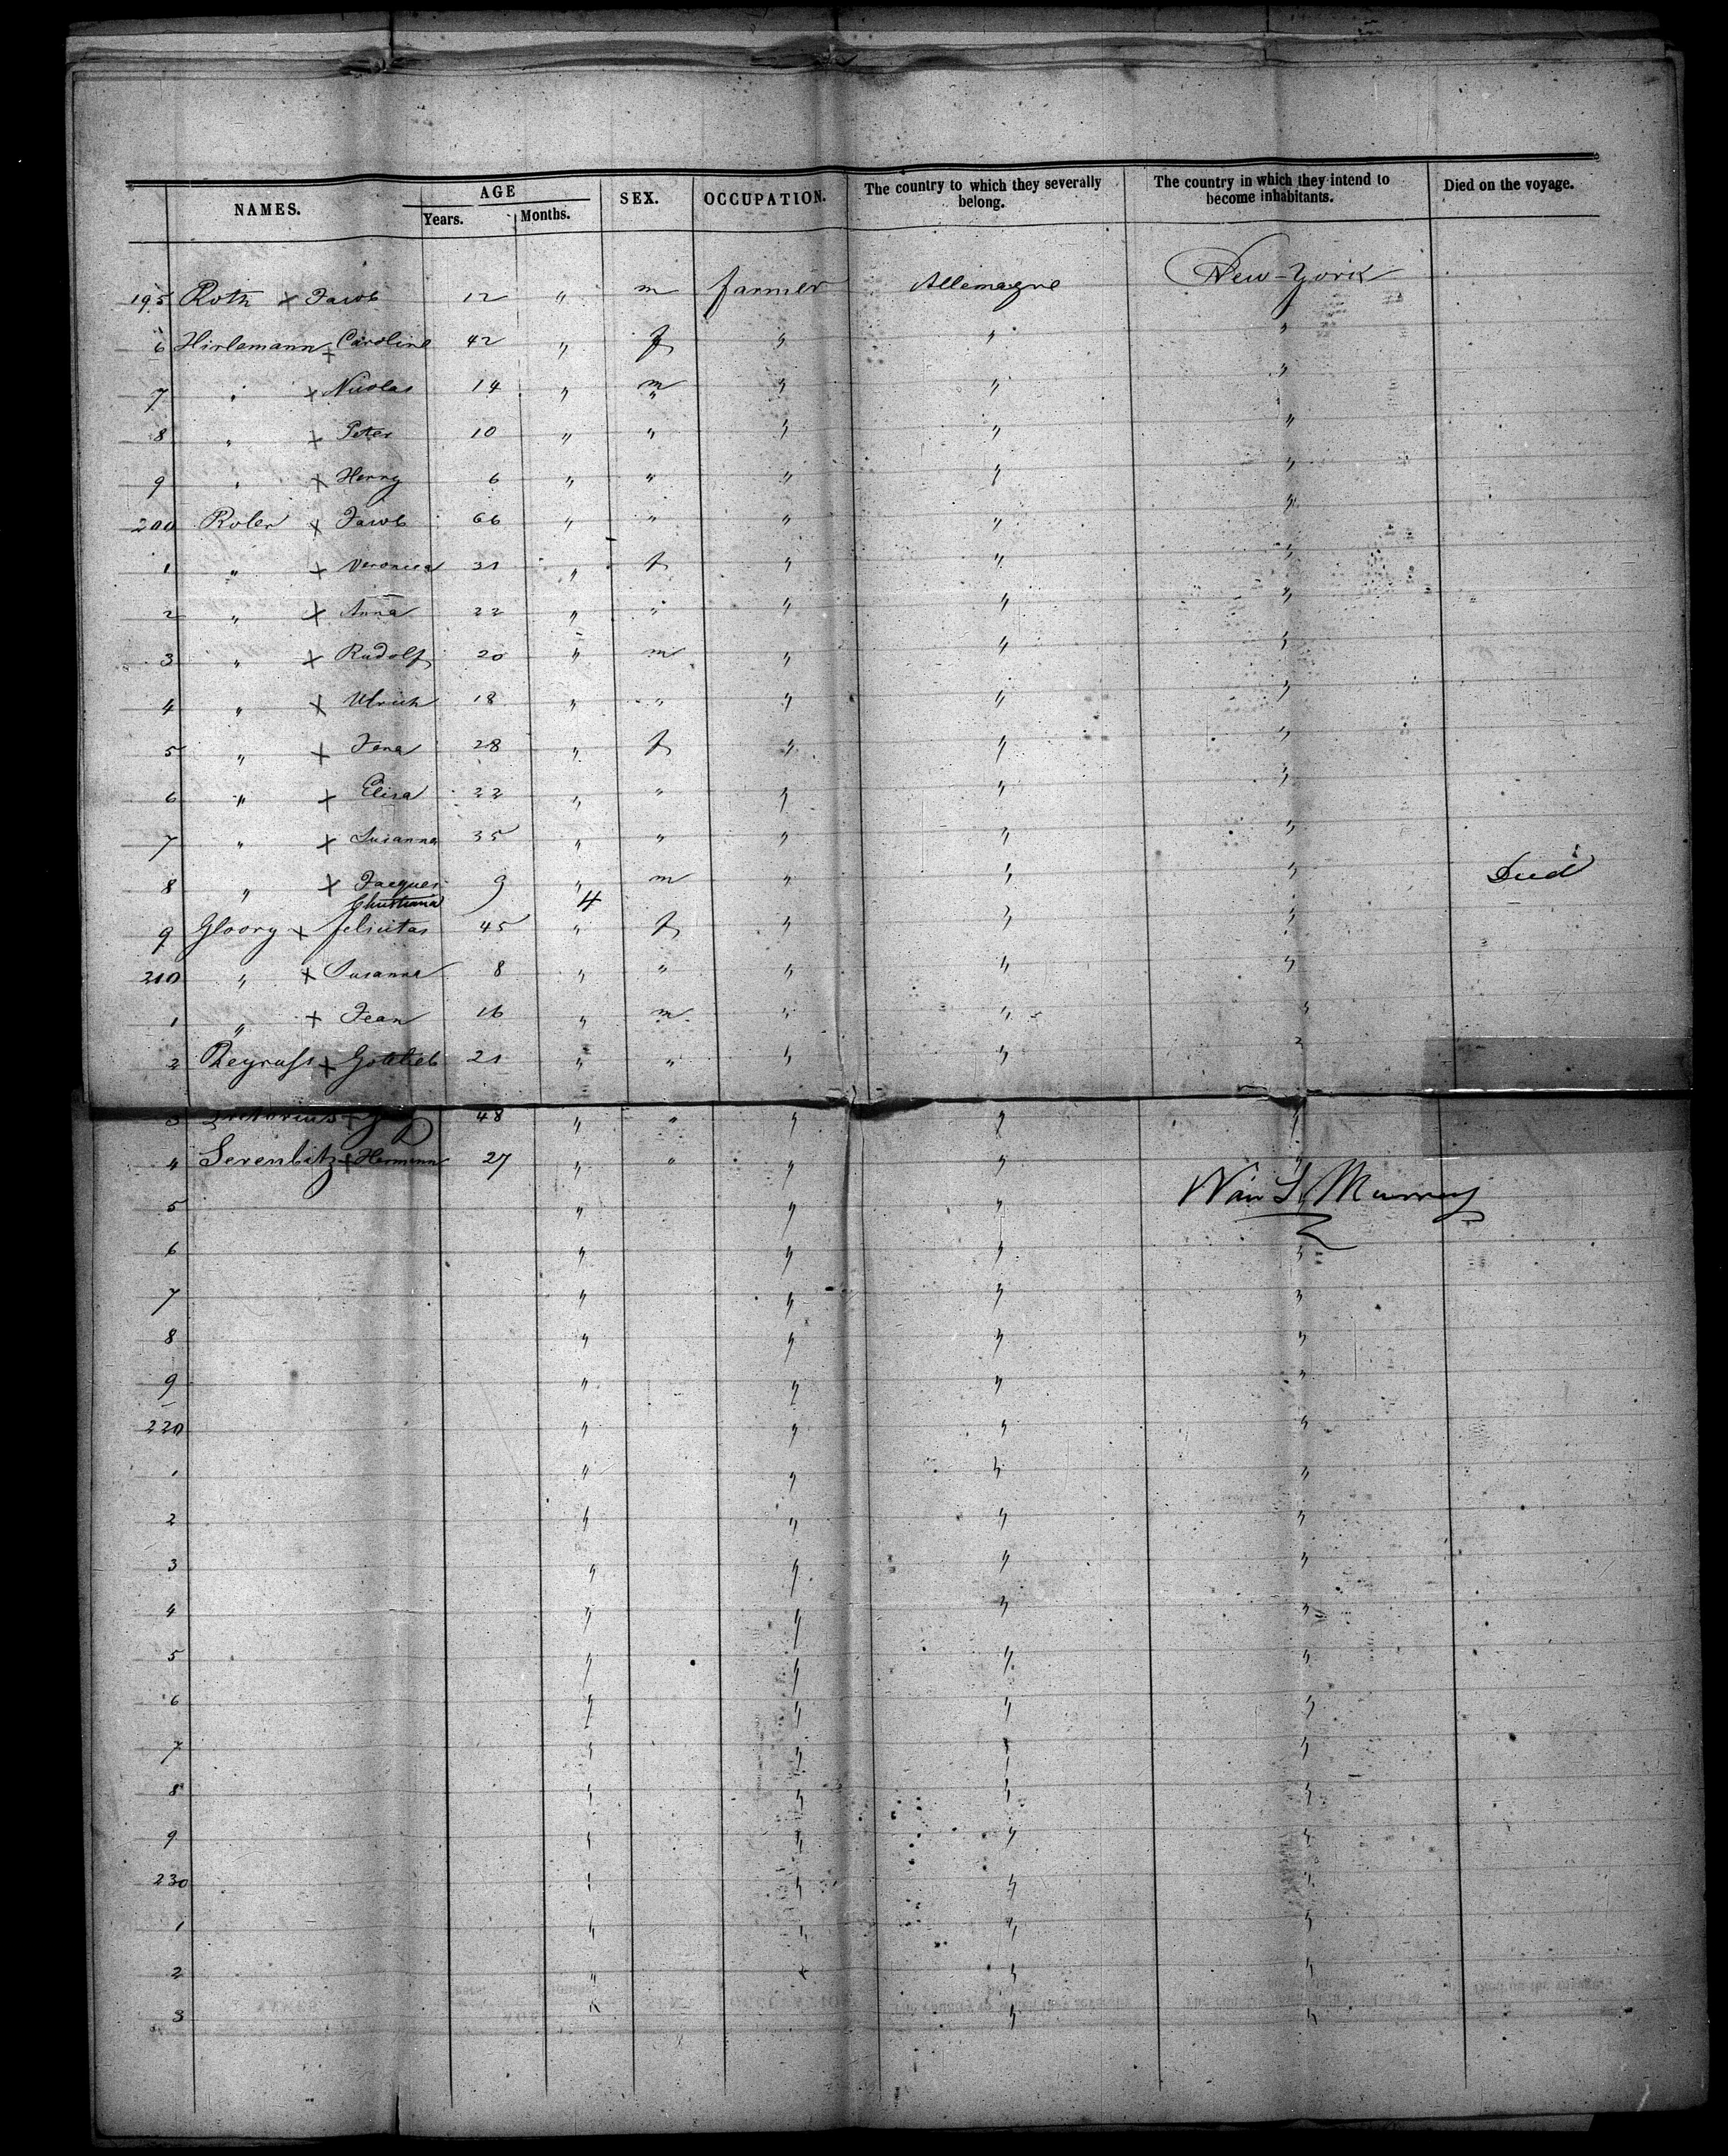 NAMES. AGE SEX. OCCUPATION. The country to which they severally belong. The country in which they intend to become inhabitants. Died on the voyage.
Years. Months.
195 Roth x Jacob 12 " m farmer Allemagne New-York
6 Hirlemann + Caroline 42 " f " " "
7 " x Nicolas 14 " m " " "
8 " x Peter 10 " " " " "
9 " x Henry 6 " " " " "
200 Roler x Jacob 66 " " " " "
1 " x Veronica 31 " f " " "
2 " x Anna 22 " " " " "
3 " x Rudolf 20 " m " " "
4 " x Ulrich 18 " " " " "
5 " x Jena 28 " f " " "
6 " x Elisa 22 " " " " "
7 " x Susanna 35 " " " " "
8 " x Jacques 9 " m " " " Died
Christiana 4
9 Gloory x felicitas 45 " f " " "
210 " x Susanna 8 " " " " "
1 " + Jean 16 " m " " "
2 Reyrafs x Gottlieb 21 " " " " "
3 + 48 " " " " "
4 Serenbitz x Hermann 27 " " " " "
5 " " " Murray
6 " " " "
7 " " " "
8 " " " "
9 " " " "
220 " " " "
1 " " " "
2 " " " "
3 " " " "
4 " " " "
5 " " " "
6 " " " "
7 " " " "
8 " " " "
9 " " " "
230 " " " "
1 " " " "
2 " " " "
3 " " "